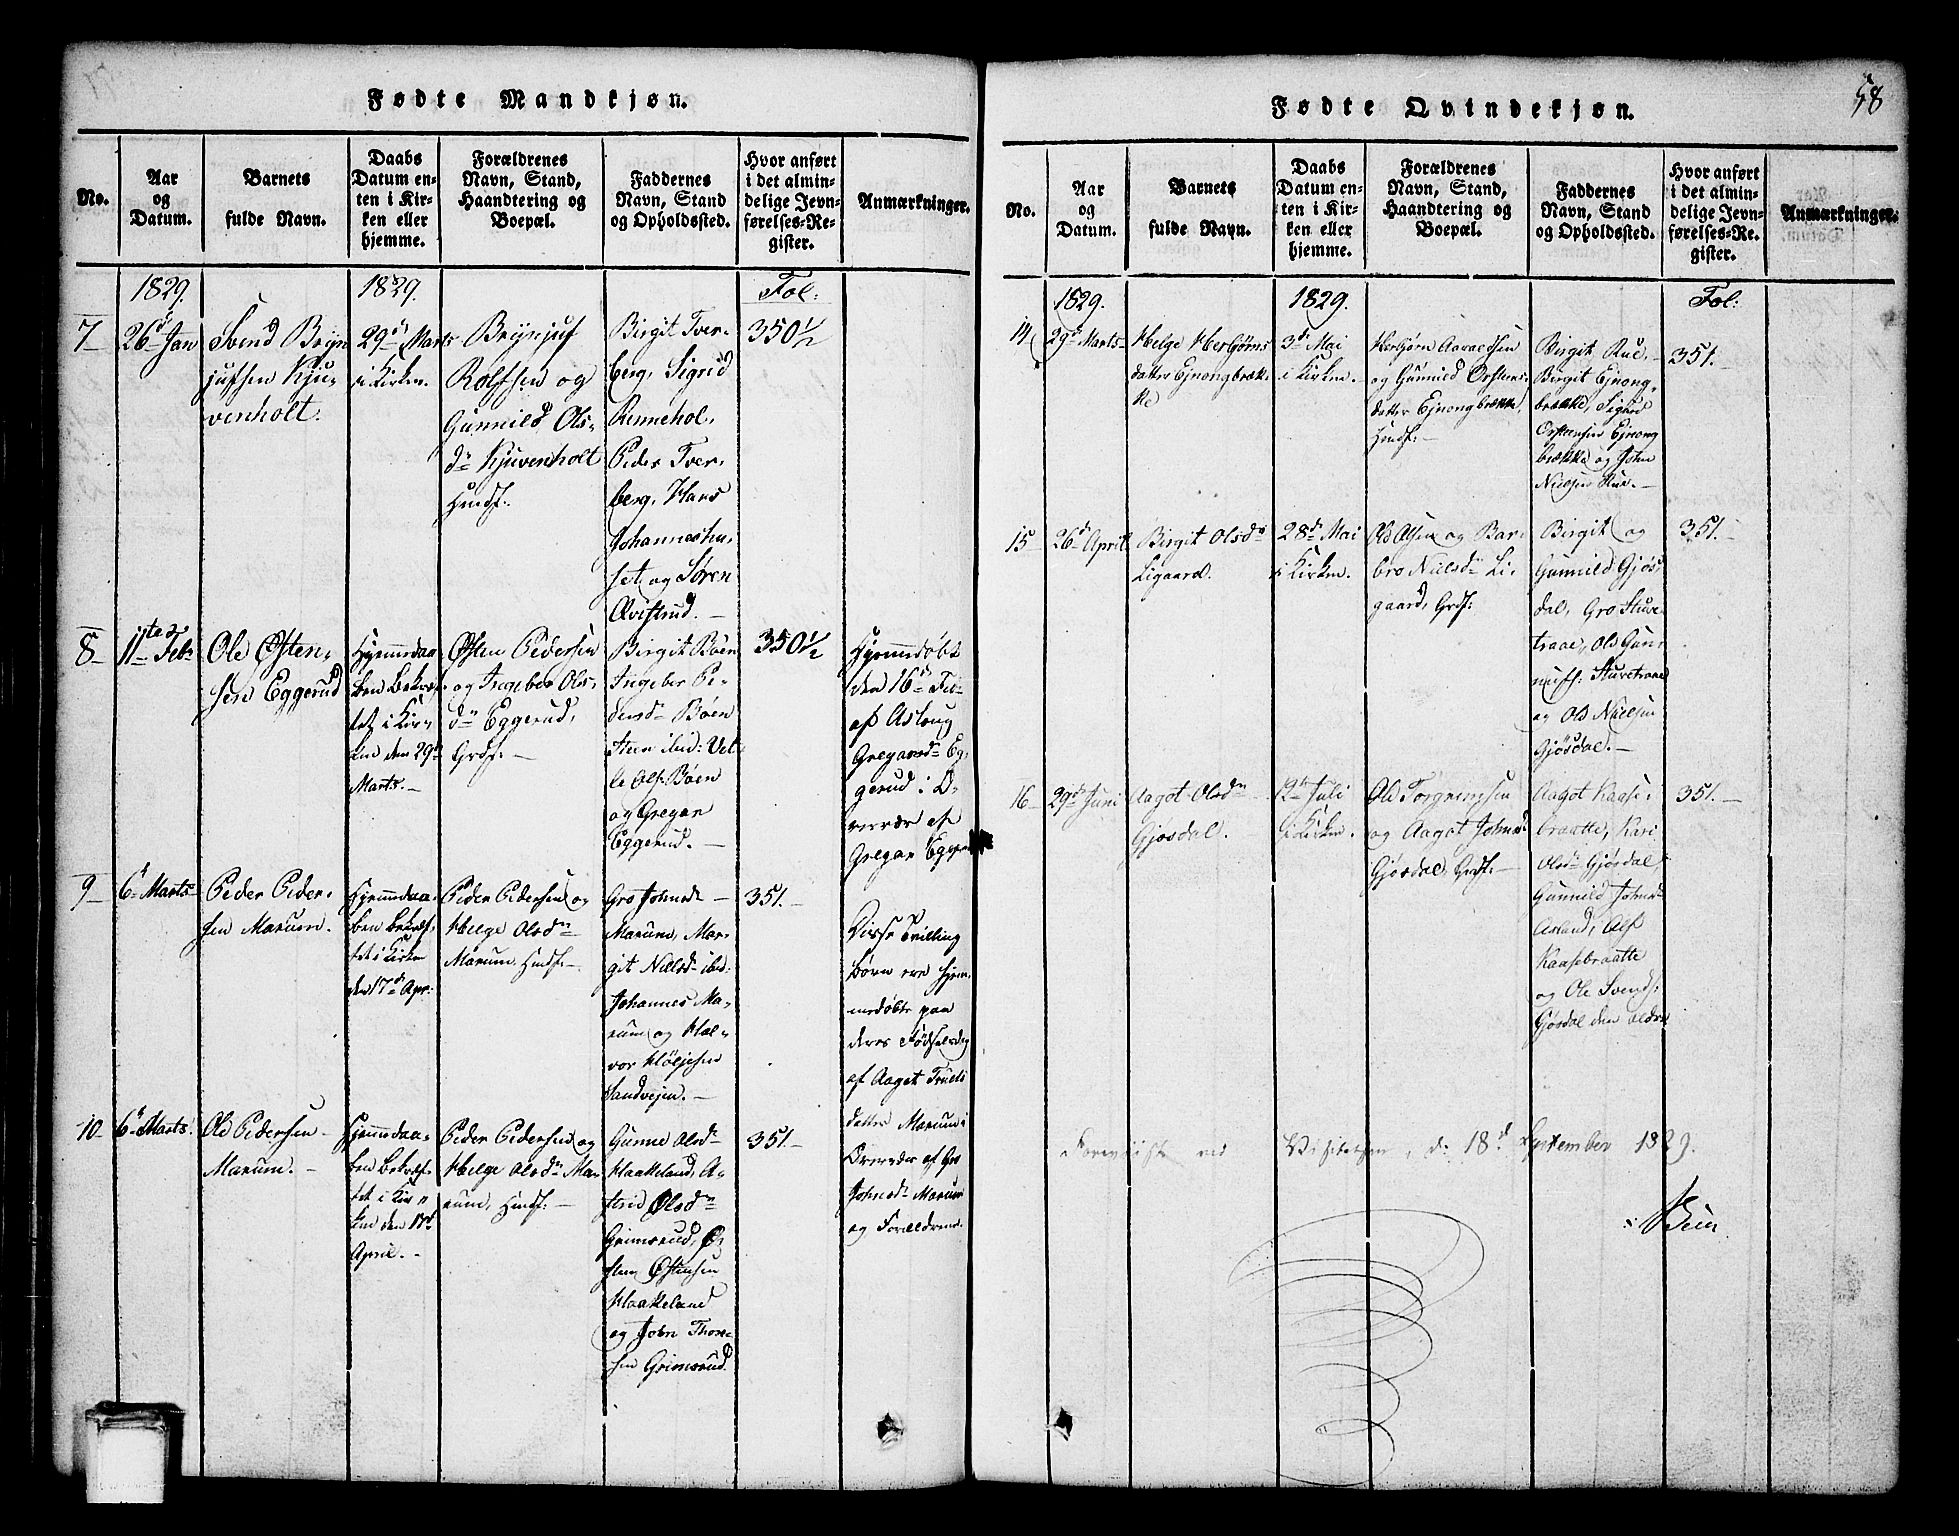 58
Fødte Mandkjøn.
No.
Aar
og
Datum.
Barnets
fulde Navn.
Daabs
Datum en-
ten i Kir-
ken eller
hjemme.
Forældrenes
Navn, Stand,
Haandtering og
Boepæl.
Faddernes
Navn, Stand
og Opholdssted.
Hvor anført
i det almin-
delige Jevn-
førelses-Re-
gister.
Anmærkninger.
1829.
1829.
Fol:
7
26d Jan
Svend Bryn
jufsen Kju-
venholt.
29d Marts
i Kirken.
Brynjuf
Rolfsen og
Gunnild Ols-
dn Kjuvenholt
Huusf:
Birgit Tver-
berg, Sigrid
Rennehol,
Peder Tver-
berg, Hans
Johanneshu-
set og Søren
Qvistrud.
350½
8
11te Febr
Ole Østen-
sen Eggerud
Hjemmedaa-
ben bekræf-
tet i Kir-
ken den 29d
Marts.
Østen Pedersen
og Ingebor Ols-
dn Eggerud,
Grdf:
Birgit Böen
Ingebor Pe-
dersdn Böen
Steen ibid: Vet-
le Alfs: Böen
og Gregar
Eggerud.
350½
Hjemmedøbt
den 16d Fe-
af Aslaug
Gregarsdn Eg-
gerud i O-
vervær af
Gregar Egger
9
6te Marts
Peder Peder-
sen Marum.
Hjemmedaa-
ben bekræf-
tet i Kirken
den 17d Apr:
Peder Pedersen og
Helge Olsdn
Marum Huusf:
Gro Johnsd
Marum, Mar-
git Nielsdn ibid:
Johannes Ma-
rum og Hal-
vor Kløljesen
Sandvejen.
351.
Disse Tvilling
børn ere hjem-
medøbte paa
deres Fødselsdag
af Aagot Truels
datter Marum i
Overvær af Gro
Johnsdn Marum
og Forældrene.
10
6te Marts.
Ole Pedersen
Marum.
Hjemmedaa-
ben bekræf-
tet i Kir-
ken den 17d
April.
Peder Pedersen og
Helge Olsdn Ma-
rum, Huusf:
Gunne Olsdn
Haakeland, A-
strid Olsdn
Grimsrud, Ø-
sten Østensen
Haakeland
og John Thore-
sen Grimsrud.
351.
Fødte Qvindekjøn.
No.
Aar
og
Datum.
Barnets
fulde Navn.
Daabs
Datum en-
ten i Kir-
ken eller
hjemme.
Forældrenes
Navn, Stand,
Haandtering og
Boepæl.
Faddernes
Navn, Stand
og Opholdssted.
Hvor anført
i det almin-
delige Jevn-
førelses-Re-
gister.
Anmærkninger.
1829.
1829.
Fol:
14
29d Marts
Helge Herbjørns
datter Ejnongbræk-
ke
3d Mai
i Kirken.
Herbjørn Aavaldsen
og Gunnild Østens
datter Ejnongbrække,
Huusf:
Birgit Rue,
Birgit Ejnong-
brække, Sigurd
Østensen Ejnong
brække og John
Nielsen Rue.
351.
15
26d April
Birgit Olsdn
Ligaard.
28d Mai
i Kirken.
Ole Olsen og Bar-
bro Nielsdn Li-
gaard, Grdf:
Birgit og
Gunnild Gjøs-
dal, Gro Sture-
traae, Ole Gun-
nufs: Sturetraae
og Ole Nielsen
Gjøsdal.
351.
16
29d Juni
Aagot Olsdn
Gjøsdal.
12te Juli
i Kirken.
Ole Torgrimsen
og Aagot Johnsd
Gjøsdal Grdf:
Aagot Kaase-
braatte, Kari
Olsdn Gjøsdal,
Gunnild Johnsd
Asland, Alf
Kaasebraatte
og Ole Svends:
Gjøsdal den ældre
351.
Foreviist ved Visitatsen, d: 18d September 1829.